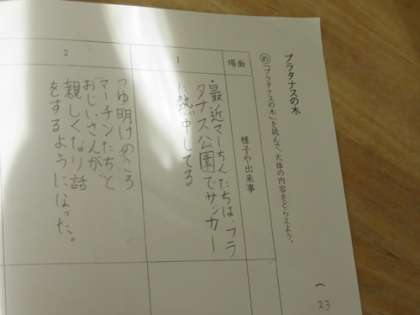 プラタナスの木
め「プラタナスの木」を読んで、大体の内容をとらえよう。
場面
様子や出来事
1
・最近マーちんたちは、プラ
タナス公園でサッカー
に夢中してる
2
つゆ明けのころ
マーチンたちと
おじいさんが
親しくなり話
をするようになった。
23